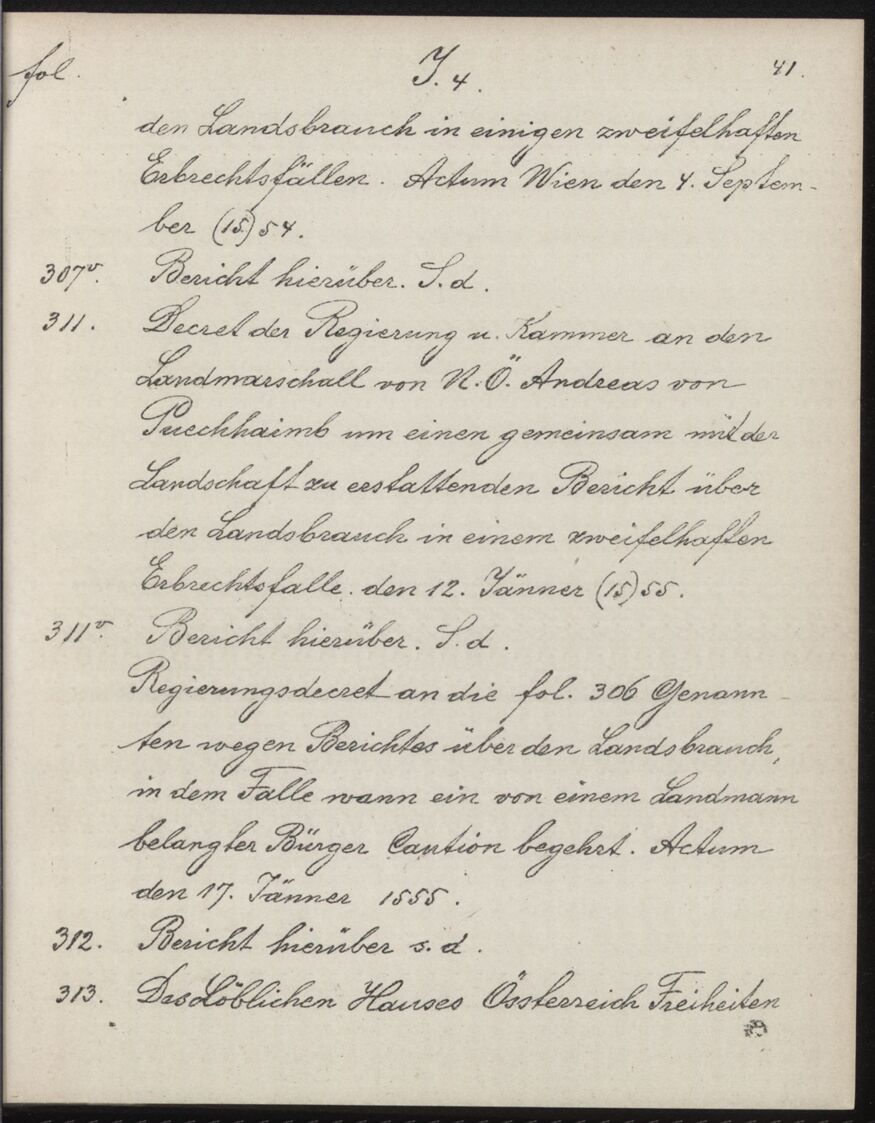 fol. J. 4. 41.
den Landsbrauch in einigen zweifelhaften
Erbrechtsfällen. Actum Wien den 4. Septem-
ber (15)54.
307v. Bericht hierüber. S. d.
311. Decret der Regierung u. Kammer an den
Landmarschall von N. Ö. Andreas von
Puechhaimb um einen gemeinsam mit der
Landschaft zu erstattenden Bericht über
den Landsbrauch in einem zweifelhaften
Erbrechtsfalle. den 12. Jänner (15)55.
311v. Bericht hierüber. S. d.
Regierungsdecret an die fol. 306 Genann-
ten wegen Berichtes über den Landsbrauch,
in dem Falle wann ein von einem Landmann
belangter Bürger Caution begehrt. Actum
den 17. Jänner 1555.
312. Bericht hierüber s. d.
313. Des Löblichen Hauses Össterreich Freiheiten